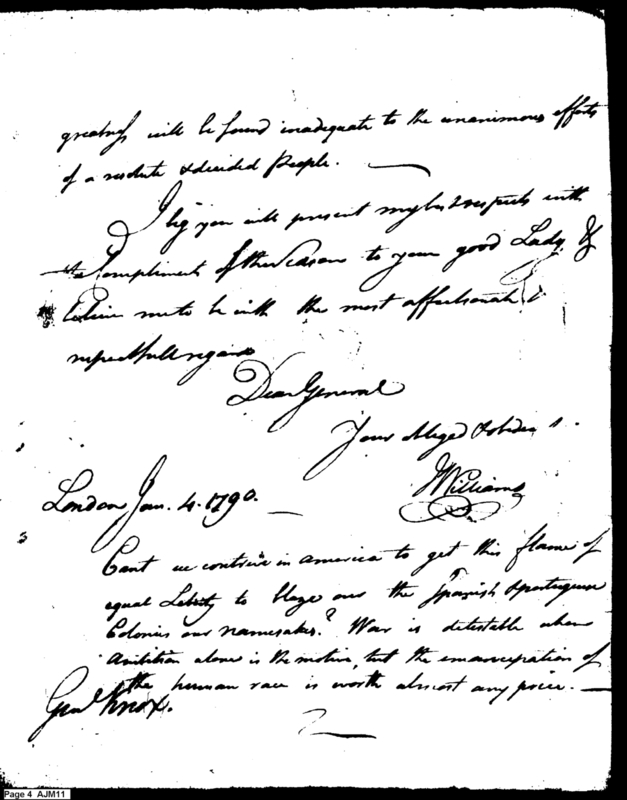 greatness will be found inadequate to the unanimous efforts
of a resolute & decided People.
I beg you will present my best respects with
the Compliments of the Season to your good Lady, &
believe me to be with the most affectionate &
respectfull regard
Dear General
Your obliged & obedien
JWilliams
London Jan. 4. 1790.
Cant we contrive in America to get this flame of
equal Liberty to blaze over the Spanish & portuguese
Colonies our namesakes? War is detestable when
Ambition alone is the motive, but the emancipation of
the human race is worth almost any price.
Genl Knox.
Page 4 AJM11